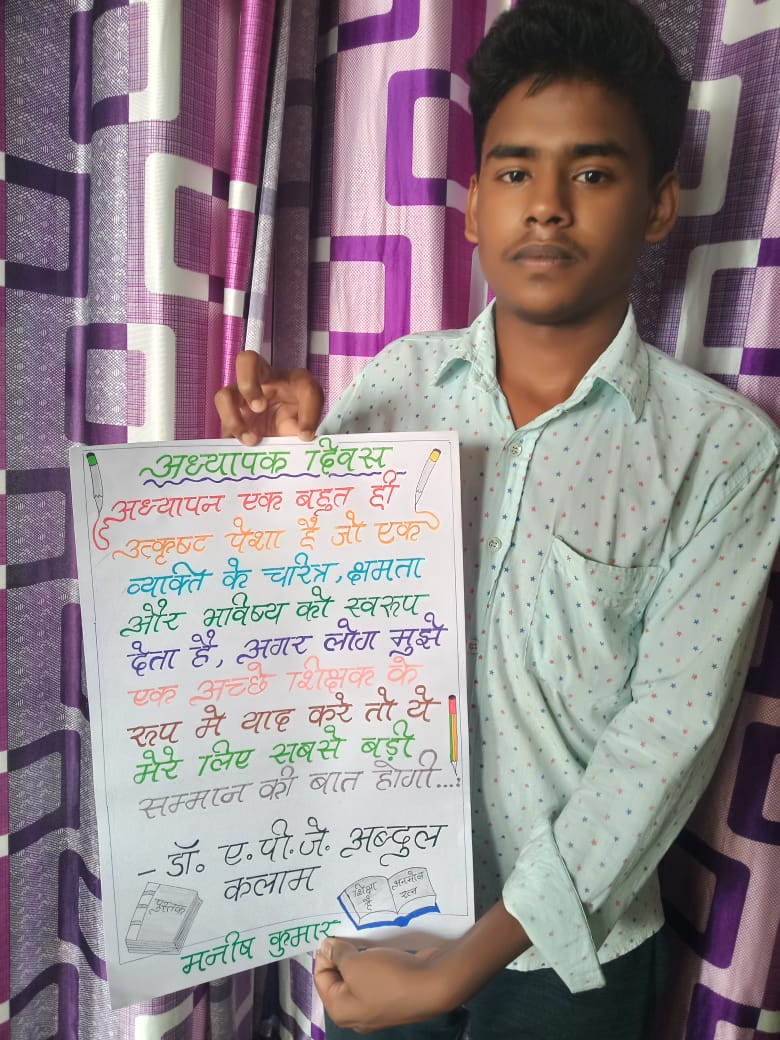 अध्यापक दिवस
अध्यापन एक बहुत ही
उत्कृष्ट पेशा है जो एक
व्यक्ति के चरित्र, क्षमता
और भविष्य को स्वरूप
देता है, अगर लोग मुझे
एक अच्छे शिक्षक के
रूप मे याद करे तो ये
मेरे लिए सबसे बड़ी
सम्मान की बात होगी...:
- डॉ. ए.पी.जे. अब्दुल
कलाम
पुस्तक
शिक्षा
है
अनमोल
रत्न
मनीष कुमार